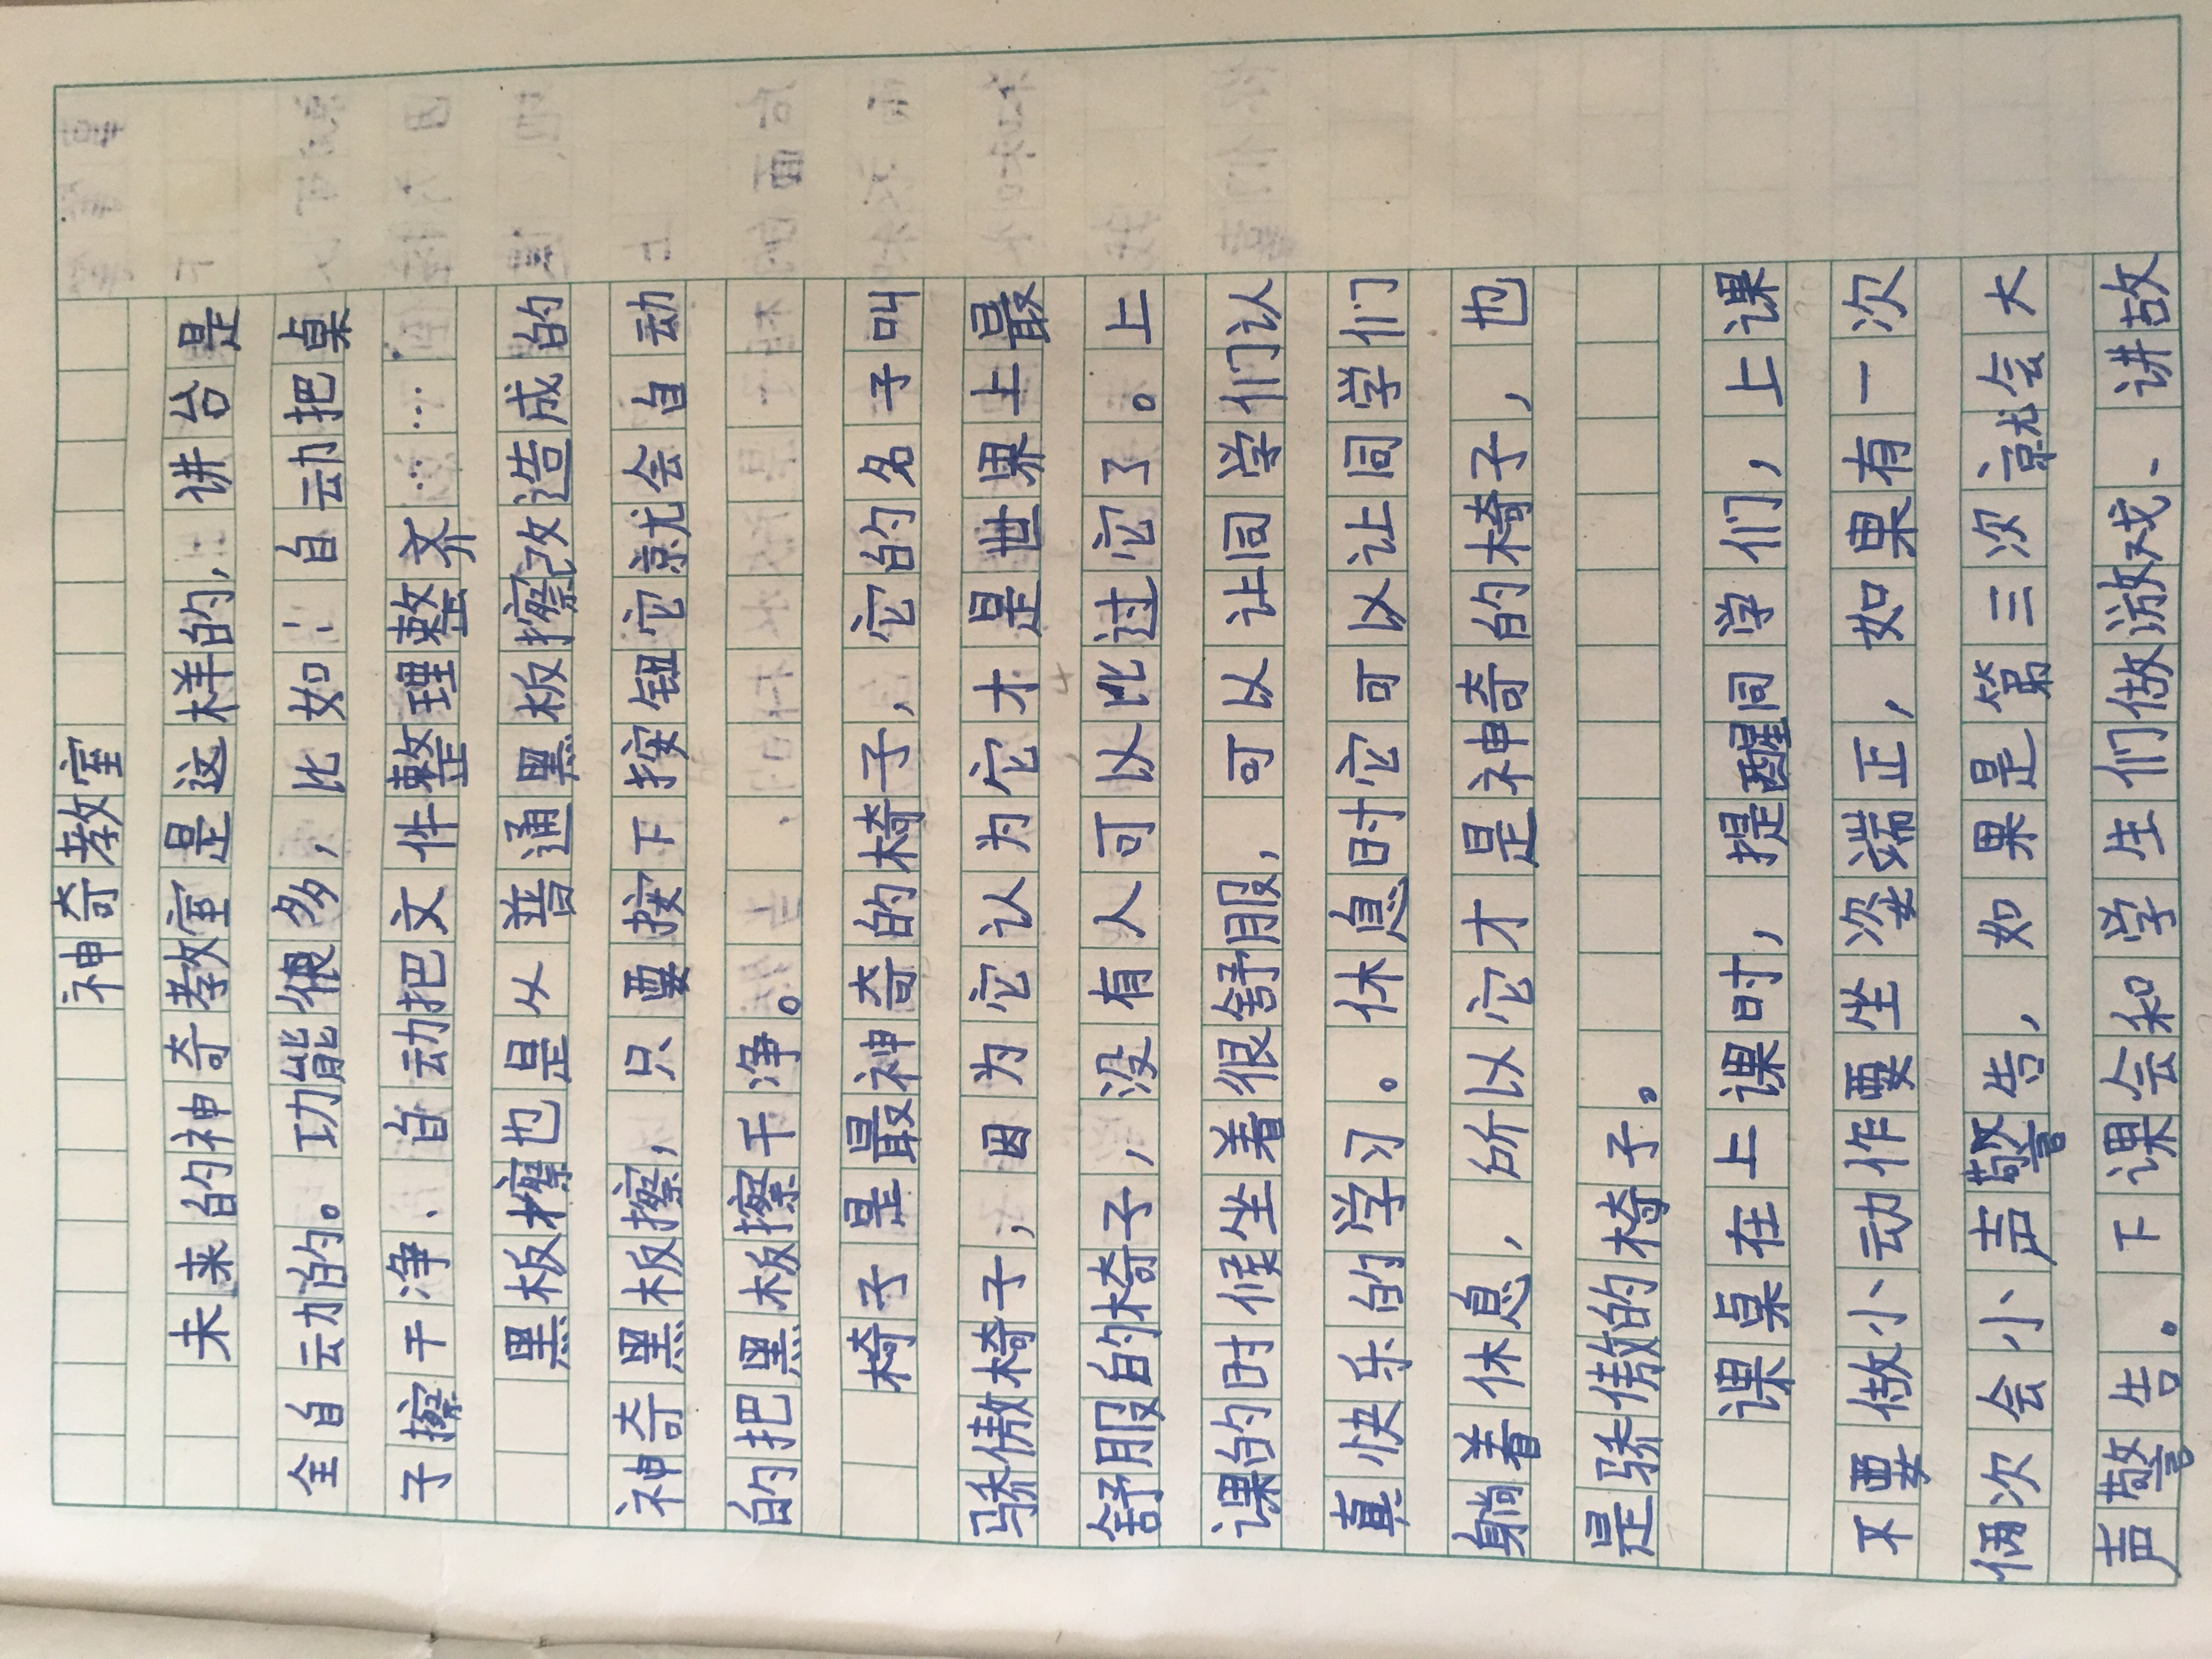 神奇教室
未来的神奇教室是这样的，讲台是
全自动的。功能很多，比如：自动把桌
子擦干净、自动把文件整理整齐……
黑板擦也是从普通黑板擦改造成的
神奇黑板擦，只要按下按钮它就会自动
的把黑板擦干净。
椅子是最神奇的椅子，它的名子叫
骄傲椅子，因为它认为它才是世界上最
舒服的椅子，没有人可以比过它了。上
课的时候坐着很舒服，可以让同学们认
真快乐的学习。休息时它可以让同学们
躺着休息，所以它才是神奇的椅子，也
是骄傲的椅子。
课桌在上课时，提醒同学们，上课
不要做小动作要坐姿端正，如果有一次
俩次会小声警告，如果是第三次就会大
声警告。下课会和学生们做游戏、讲故